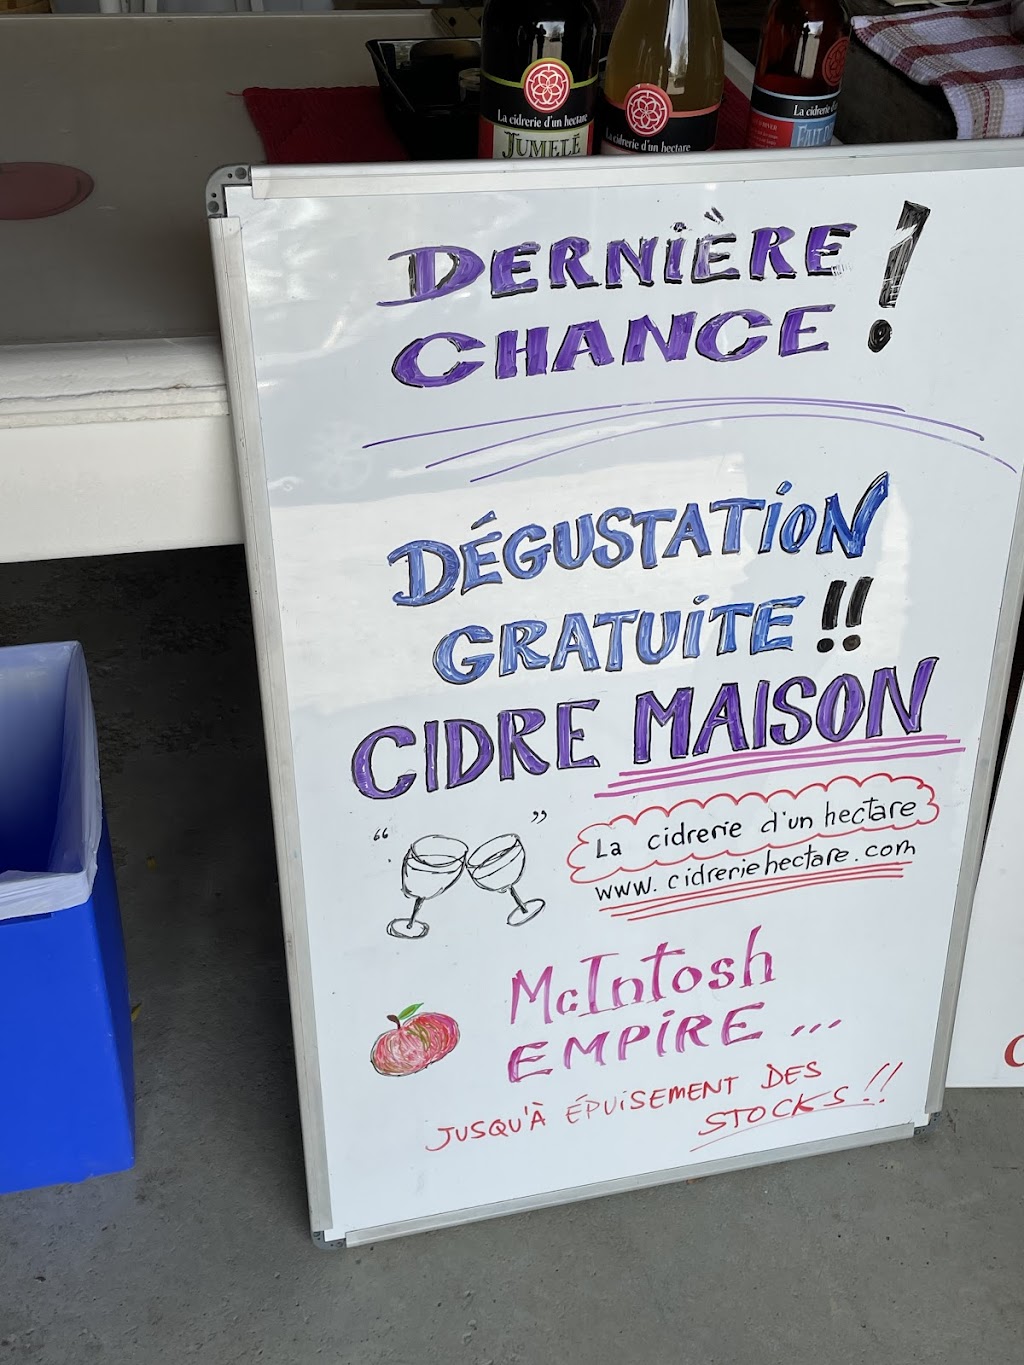 La cidrerie d'un hectare
JUMELÉ
La cidrerie d'un hectare
La cidrerie d'un
DERNIÈRE
CHANCE !
DÉGUSTATION
GRATUITE !!
CIDRE MAISON
“ ”
La cidrerie d'un hectare
www.cidreriehectare.com
McIntosh
EMPIRE ...
JUSQU'À ÉPUISEMENT DES
STOCKS !!